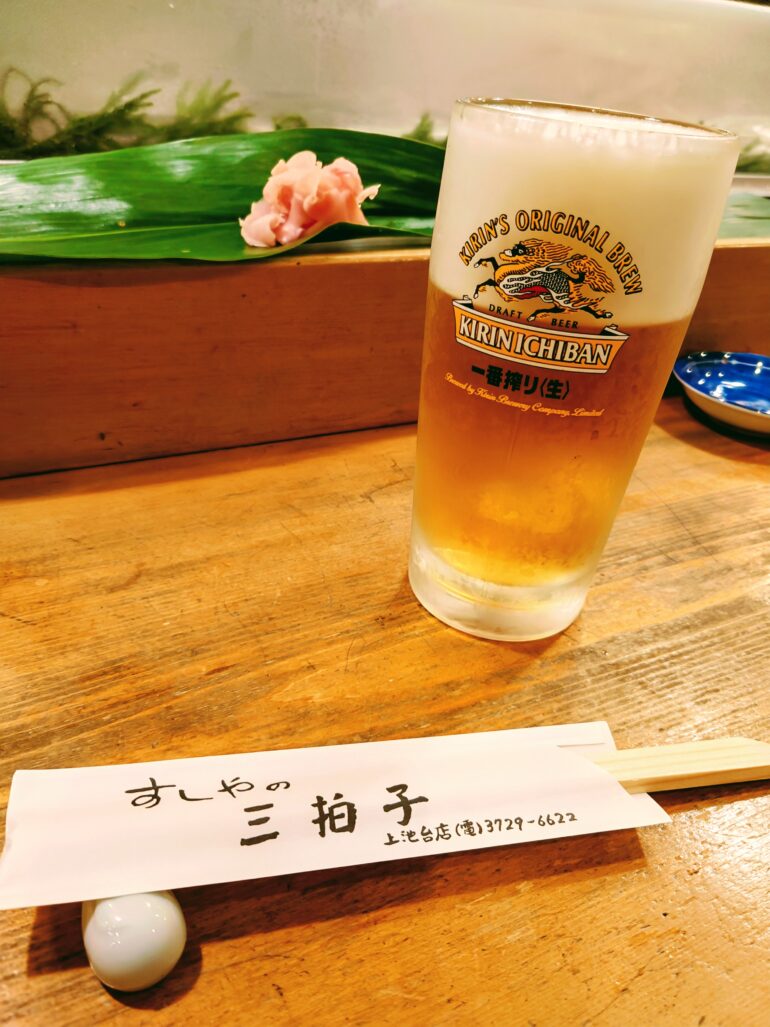 KIRIN'S ORIGINAL BREW
DRAFT BEER
KIRIN ICHIBAN
一番搾り〈生〉
Brewed by Kirin Brewery Company, Limited
すしやの
三拍子
上池台店(電)3729-6622